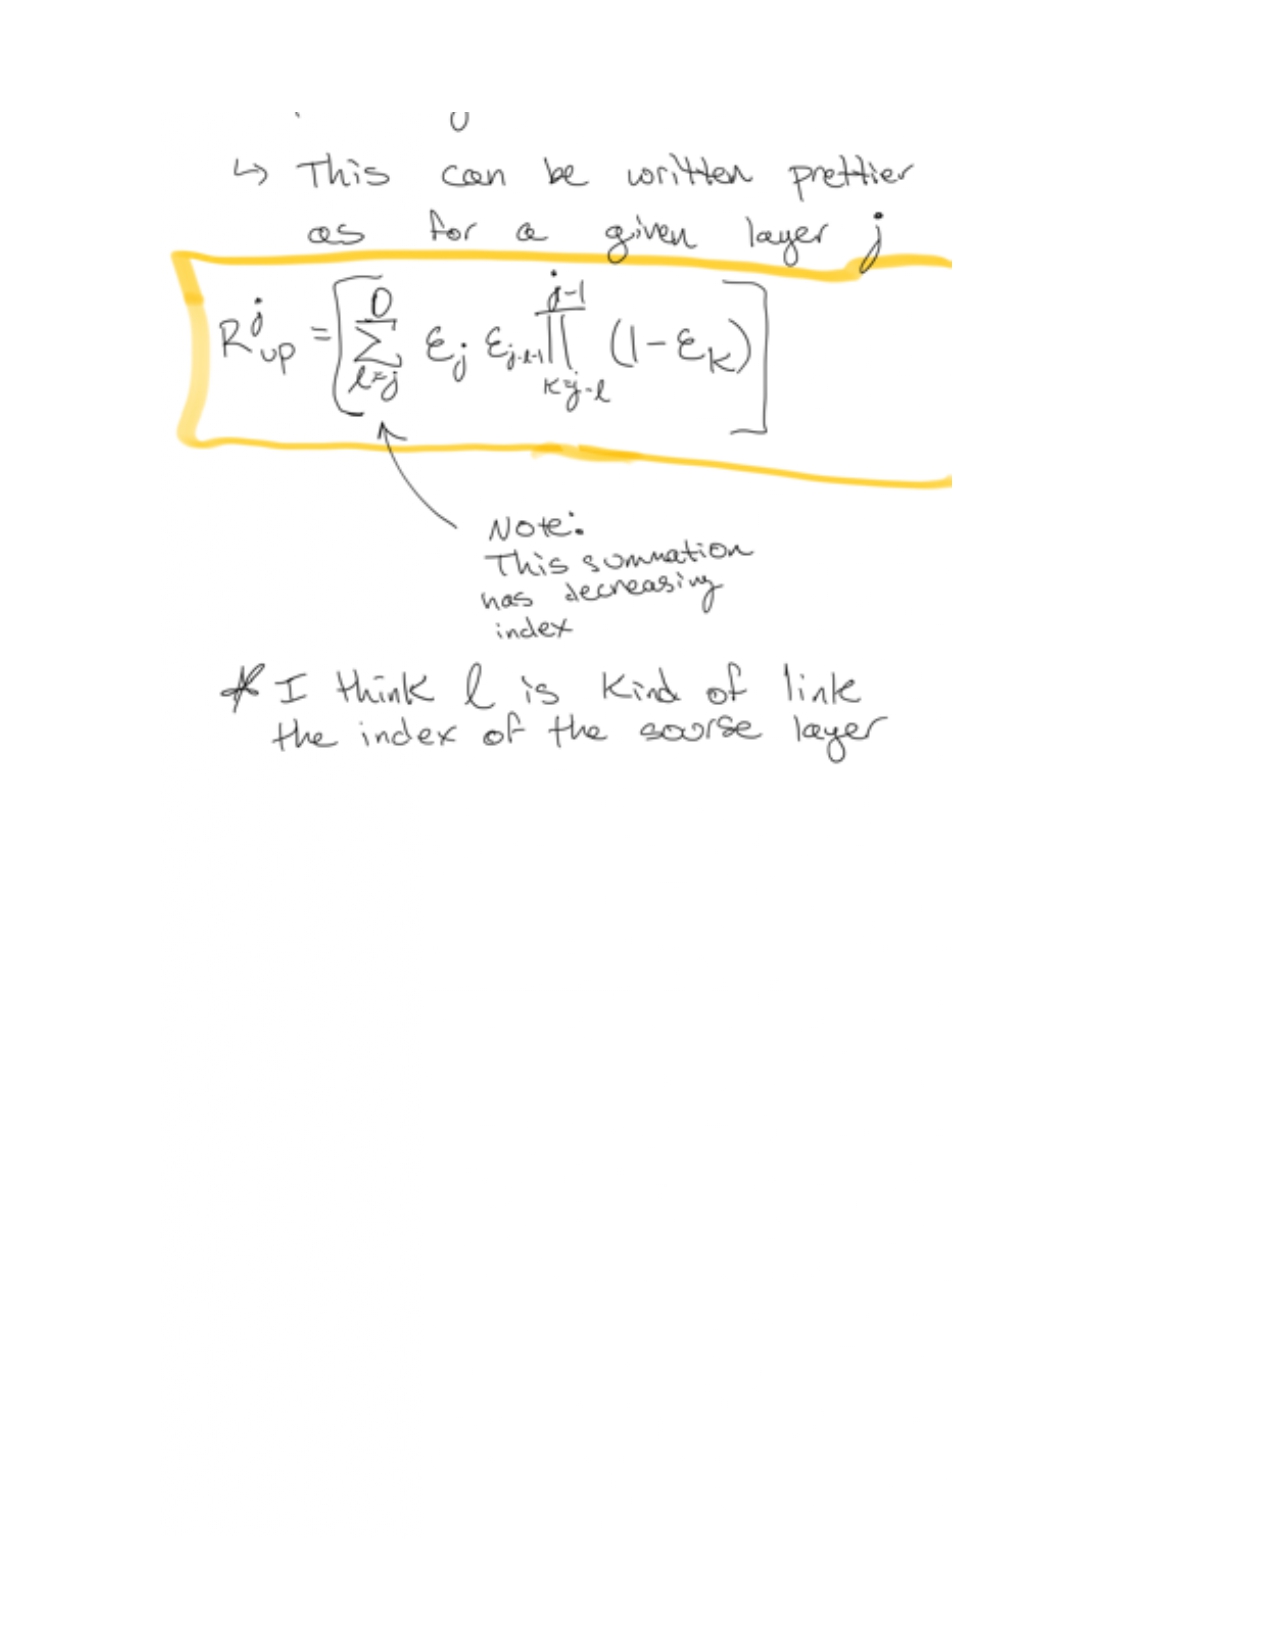 ↳ This can be written prettier
as for a given layer j
R^j_up = [ Σ_{l=j}^{0} ε_j ε_{j-l-1} ∏_{k=j-l}^{j-1} (1-ε_k) ]
Note:
This summation
has decreasing
index
* I think l is kind of link
the index of the sourse layer